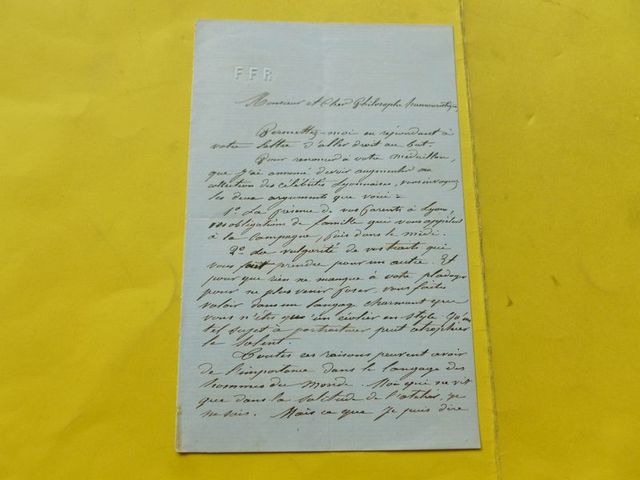 FFR
Monsieur et Cher Philosophe humouristique,
Permettez-moi en répondant à
votre lettre d'aller droit au but.
Pour renoncer à votre médaillon,
que j'ai annoncé devoir augmenter ma
collection des célébrités Lyonnaises, vous invoquez
les deux arguments que voici :
1º La présence de vos Parents à Lyon,
vos obligations de famille qui vous appellent
à la Campagne, puis dans le midi.
2º La vulgarité de vos traits qui
vous fait prendre pour un autre Et
pour que rien ne manque à votre plaidoyer
pour ne plus venir poser, vous faites
valoir dans un langage charmant que
vous n'êtes qu'un écolier en style. Qu'un
tel sujet à portraiturer peut atrophier
le talent.
Toutes ces raisons peuvent avoir
de l'importance dans le langage des
hommes du monde. Moi qui ne vit
que dans la solitude de l'atelier, je
ne sais. Mais ce que je puis dire